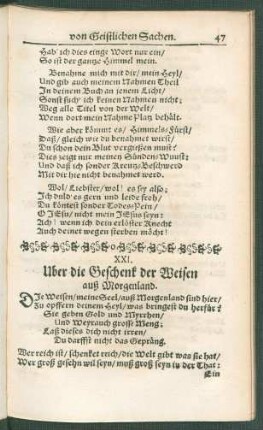 von Geistlichen Sachen. 47
Hab' ich dies einge Wort nur ein/
So ist der gantze Himmel mein.
Benahme mich mit dir/ mein Heyl/
Und gib auch meinem Nahmen Theil
In deinem Buch an jenem Licht/
Sonst such' ich keinen Nahmen nicht;
Weg alle Titel von der Welt/
Wenn dort mein Nahme Platz behält.
Wie aber kömmt es/ Himmels-Fürst/
Daß/ gleich wie du benahmet wirst/
Du schon dein Blut vergiessen must?
Dies zeigt mir meinen Sünden-Wust;
Und daß ich sonder Kreutz-Beschwerd
Mit dir hie nicht benahmet werd.
Wol/ Liebster/ wol! es sey also;
Ich duld' es gern und leide froh/
Du köntest sonder Todes-Pein/
O JEsu/ nicht mein JEsus seyn:
Ach! wenn ich dein erlöster Knecht
Auch deinet wegen sterben möcht!
XXI.
Uber die Geschenk der Weisen
auß Morgenland.
DIe Weisen/ meine Seel/ auß Morgenland sind hier/
Zu opffern deinem Heyl/ was bringest du herfür?
Sie geben Gold und Myrrhen/
Und Weyrauch grosse Meng;
Laß dieses dich nicht irren/
Du darffst nicht das Gepräng.
Wer reich ist/ schencket reich/ die Welt gibt was sie hat/
Wer groß gesehn wil seyn/ muß groß seyn in der That:
Ein